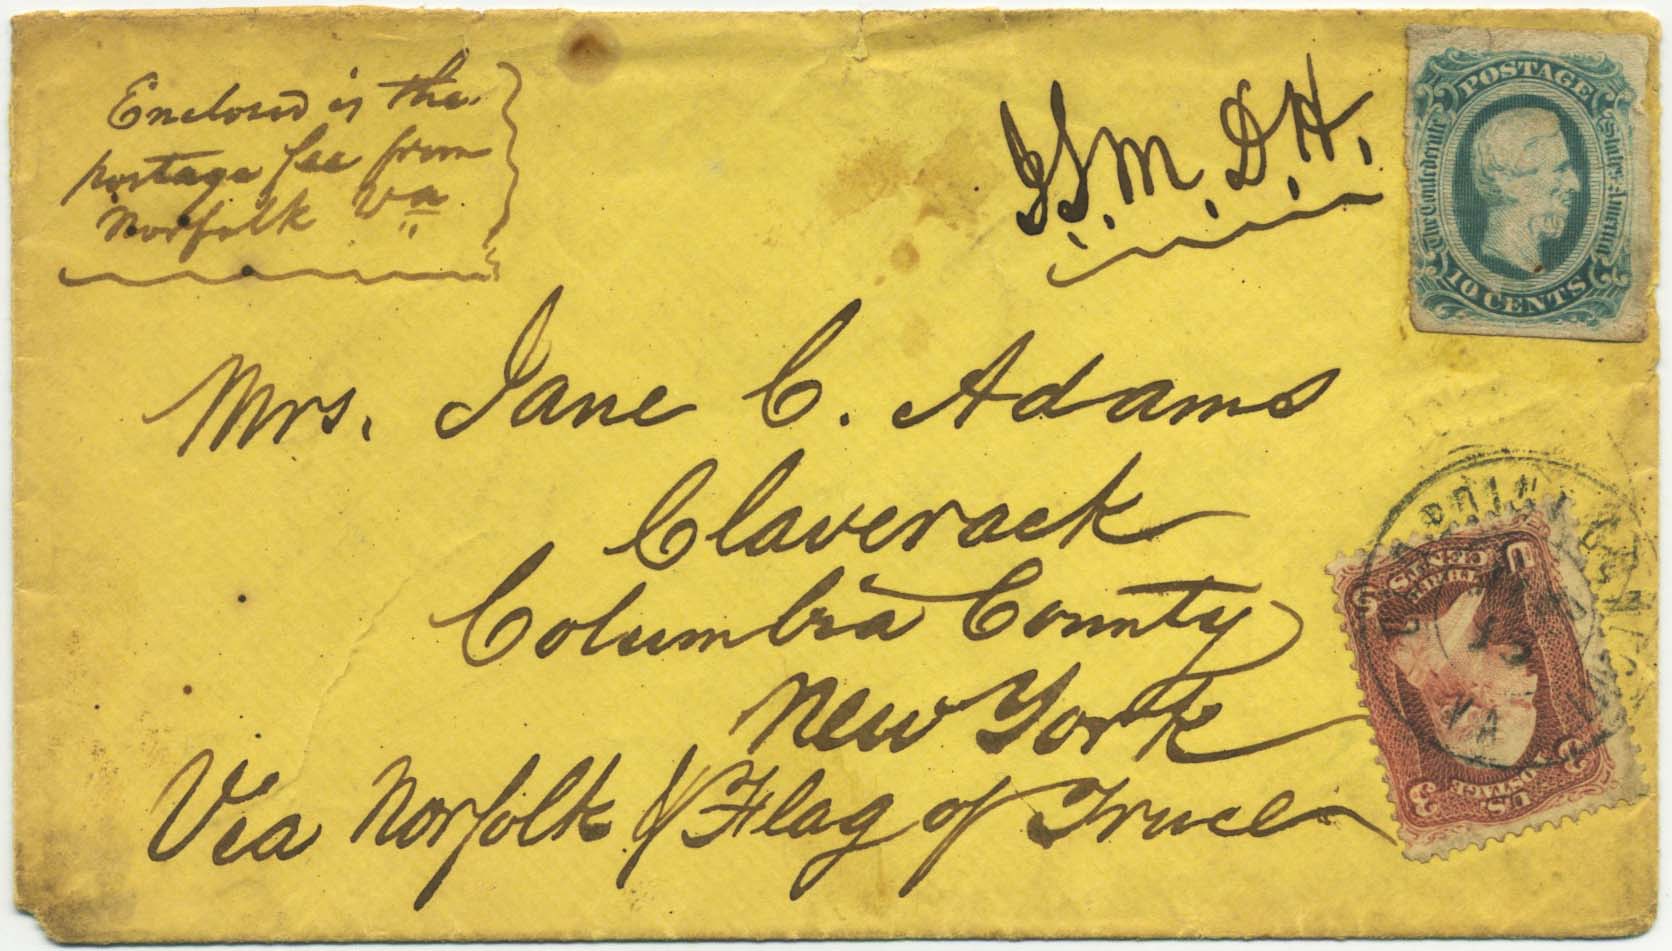 Enclosed is the
postage fee from
Norfolk Va
J S. M. D. H.
POSTAGE
The Confederate States of America
10 CENTS
Mrs. Jane C. Adams
Claverack
Columbia County
New York
Via Norfolk & Flag of Truce
VA
U S
3 CENTS 3
U.S. POSTAGE